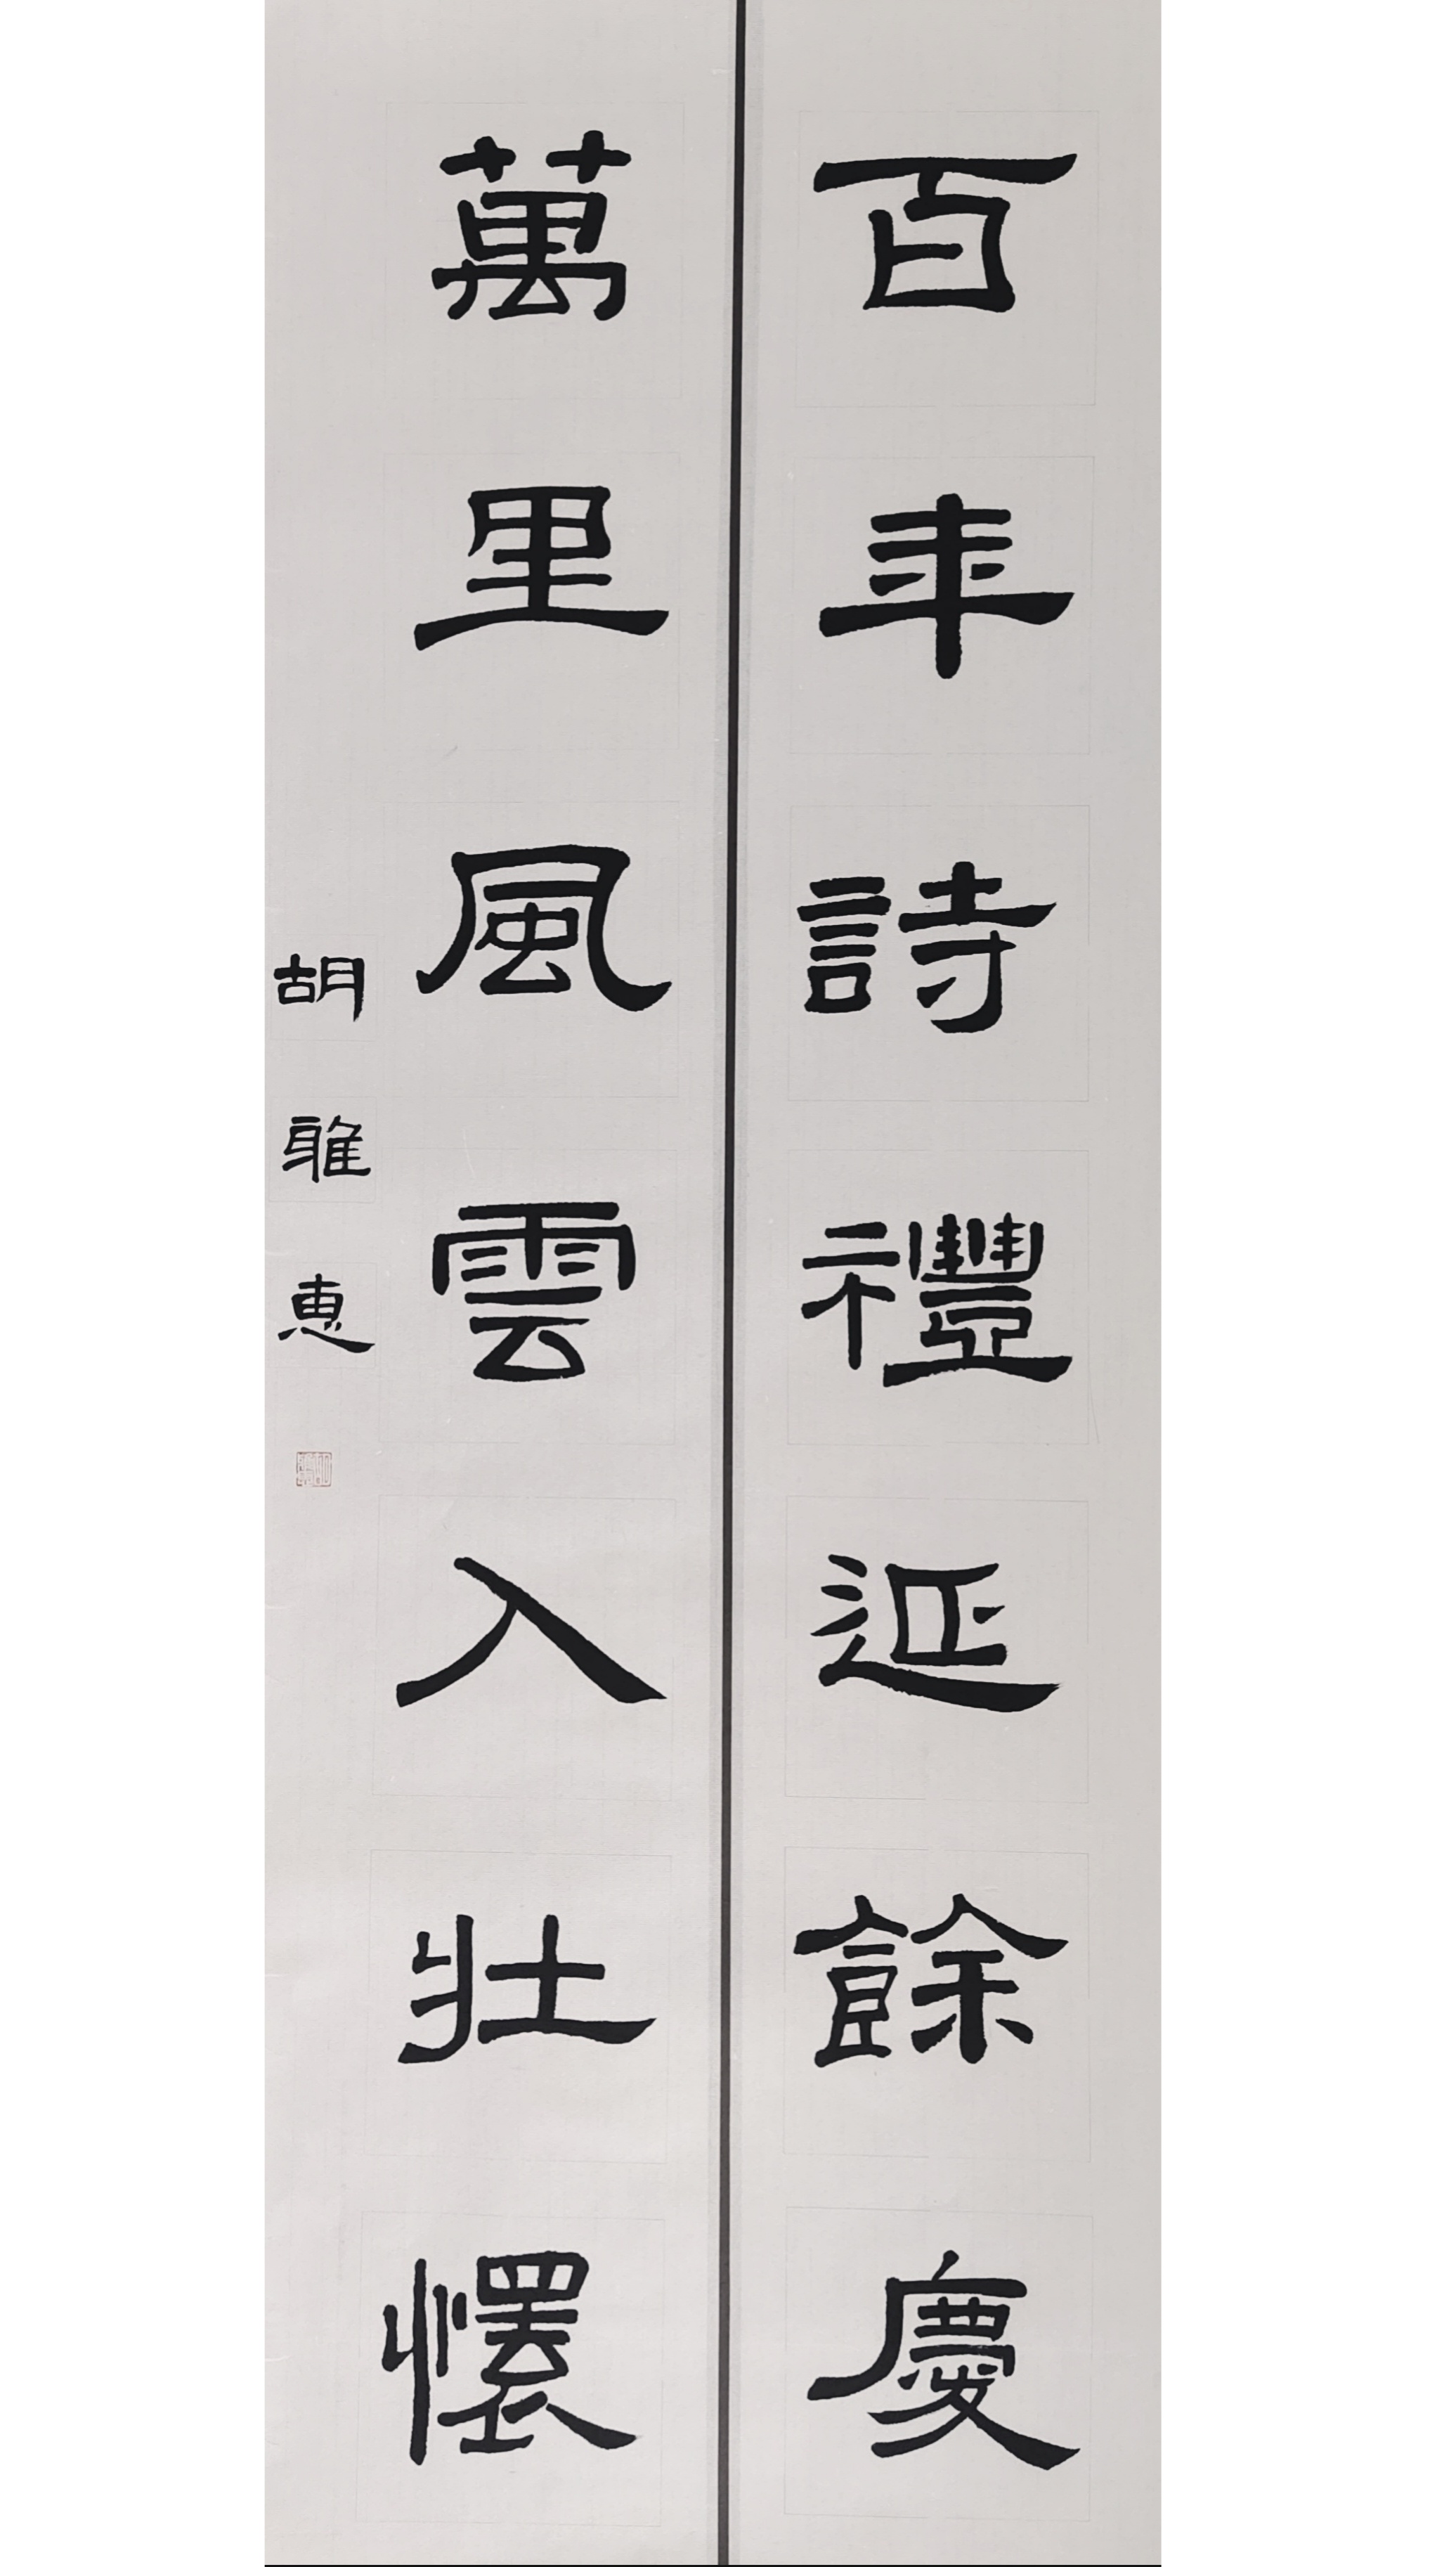 百年詩禮延餘慶
萬里風雲入壯懷
胡雅惠